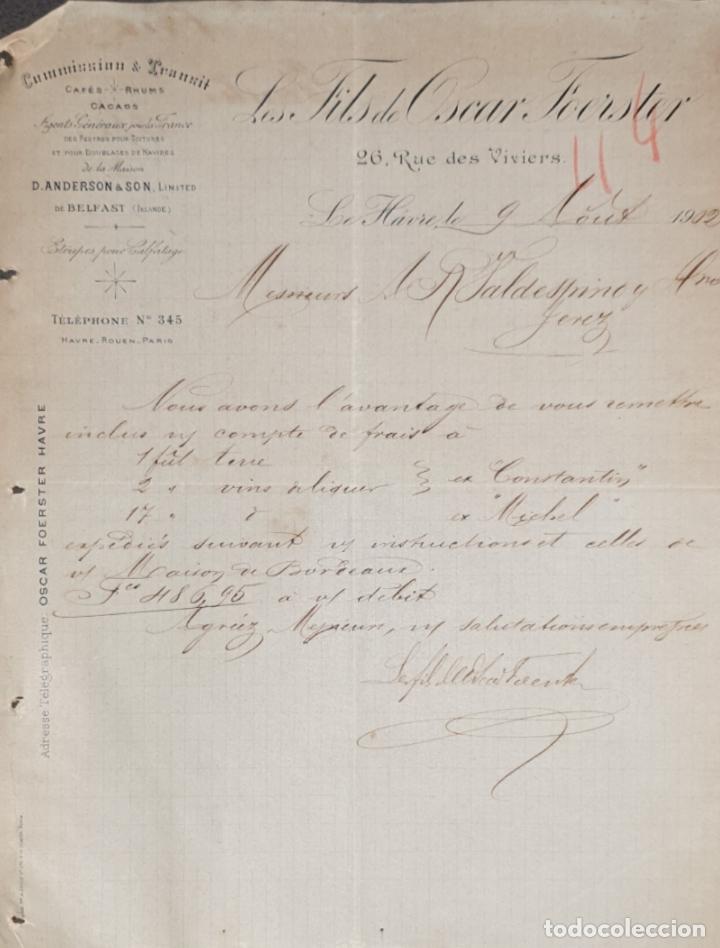 Commission & Transit
CAFÉS - RHUMS
CACAOS
Agents Généraux pour la France
DES FEUTRES POUR TOITURES
ET POUR DOUBLAGES DE NAVIRES
de la Maison
D. ANDERSON & SON, LIMITED
DE BELFAST (IRLANDE)
Etoupes pour Calfatage
TÉLÉPHONE No 345
HAVRE_ROUEN_PARIS
Les Fils de Oscar Foerster
26, Rue des Viviers.
114
Le Hâvre, le 9 Août 1902
Messieurs A R Valdespino y Hno
Jerez
Nous avons l'avantage de vous remettre
inclus n/ compte de frais à
1 fût terre
2 " vins de liqueur } ex "Constantin"
17 " d° ex "Michel"
expédiés suivant v/ instructions et celles de
v/ Maison de Bordeaux.
Fcs 486,95 à v/ débit
Agréez, Messieurs, n/ salutations empressées
Les fils de Oscar Foerster
Adresse Télégraphique: OSCAR FOERSTER HAVRE
todocoleccion.net